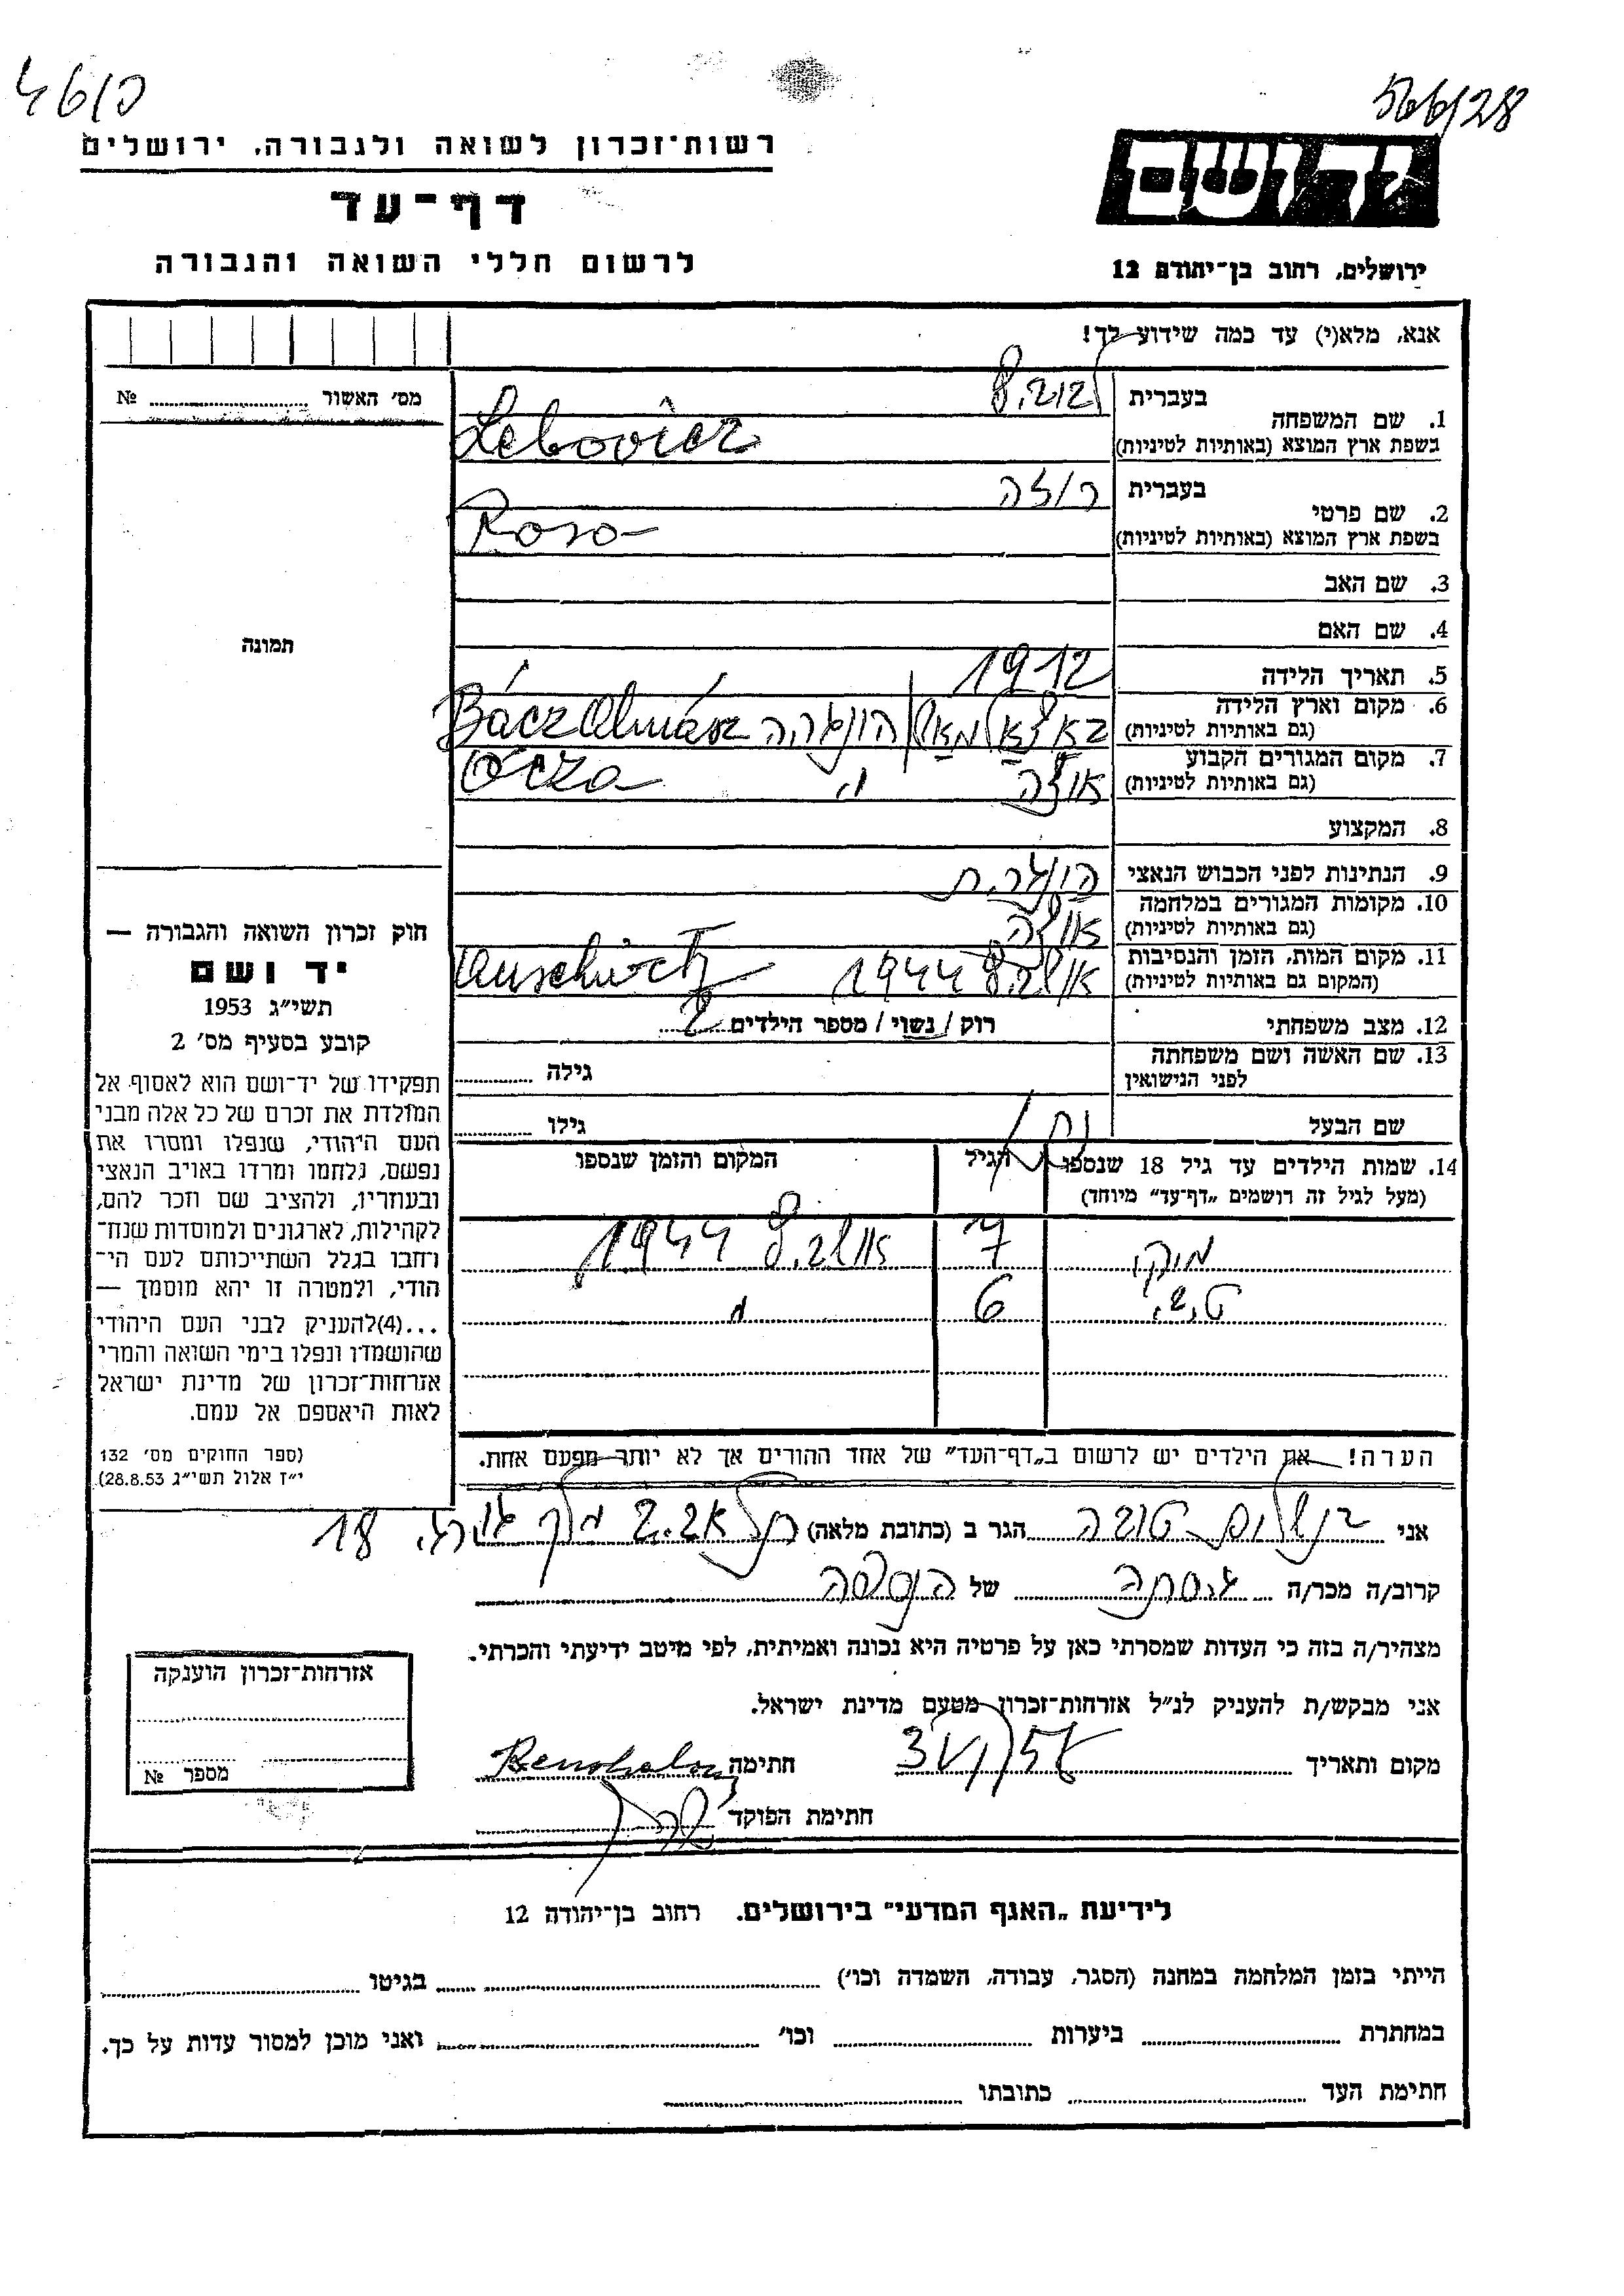 46/כ
566/28
רשות־זכרון לשואה ולגבורה, ירושלים
דף־עד
לרשום חללי השואה והגבורה
יד ושם
ירושלים, רחוב בן־יהודה 12
אנא, מלא(י) עד כמה שידוע לך!
מס׳ האשור № 
1. שם המשפחה בעברית לבוביץ
בשפת ארץ המוצא (באותיות לטיניות) Lebovicz
2. שם פרטי בעברית רוזה
בשפת ארץ המוצא (באותיות לטיניות) Roza
3. שם האב
4. שם האם
תמונה
5. תאריך הלידה 1912
6. מקום וארץ הלידה
(גם באותיות לטיניות) הונגריה Bácz Almász
7. מקום המגורים הקבוע
(גם באותיות לטיניות) Ócza
8. המקצוע
9. הנתינות לפני הכבוש הנאצי הונגרית
10. מקומות המגורים במלחמה
(גם באותיות לטיניות)
11. מקום המות, הזמן והנסיבות
(המקום גם באותיות לטיניות) אושביץ 1944 Auschwitz
12. מצב משפחתי רוק / נשוי / מספר הילדים 2
13. שם האשה ושם משפחתה
לפני הנישואין גילה
שם הבעל גילו
14. שמות הילדים עד גיל 18 שנספו הגיל המקום והזמן שנספו
(מעל לגיל זה רושמים „דף־עד״ מיוחד)
מוקי 7 אושביץ 1944
טיבי 6 "
חוק זכרון השואה והגבורה —
יד ושם
תשי״ג 1953
קובע בסעיף מס׳ 2
תפקידו של יד־ושם הוא לאסוף אל
המולדת את זכרם של כל אלה מבני
העם היהודי, שנפלו ומסרו את
נפשם, נלחמו ומרדו באויב הנאצי
ובעוזריו, ולהציב שם וזכר להם,
לקהילות, לארגונים ולמוסדות שנח־
רחבו בגלל השתייכותם לעם הי־
הודי, ולמטרה זו יהא מוסמך —
...(4)להעניק לבני העם היהודי
שהושמדו ונפלו בימי השואה והמרי
אזרחות־זכרון של מדינת ישראל
לאות היאספם אל עמם.
(ספר החוקים מס׳ 132
י״ז אלול תשי״ג 28.8.53).
הערה! את הילדים יש לרשום ב„דף־העד״ של אחד ההורים אך לא יותר מפעם אחת.
אני בנשלום טובה הגר ב (כתובת מלאה) תל אביב 18
קרוב/ה מכר/ה גיסתה של הנספה
מצהיר/ה בזה כי העדות שמסרתי כאן על פרטיה היא נכונה ואמיתית, לפי מיטב ידיעתי והכרתי.
אני מבקש/ת להעניק לנ״ל אזרחות־זכרון מטעם מדינת ישראל.
מקום ותאריך חתימה
חתימת הפוקד
אזרחות־זכרון הוענקה
מספר №
לידיעת „האגף המדעי״ בירושלים. רחוב בן־יהודה 12
הייתי בזמן המלחמה במחנה (הסגר, עבודה, השמדה וכו׳) בגיטו
במחתרת ביערות וכו׳ ואני מוכן למסור עדות על כך.
חתימת העד כתובתו